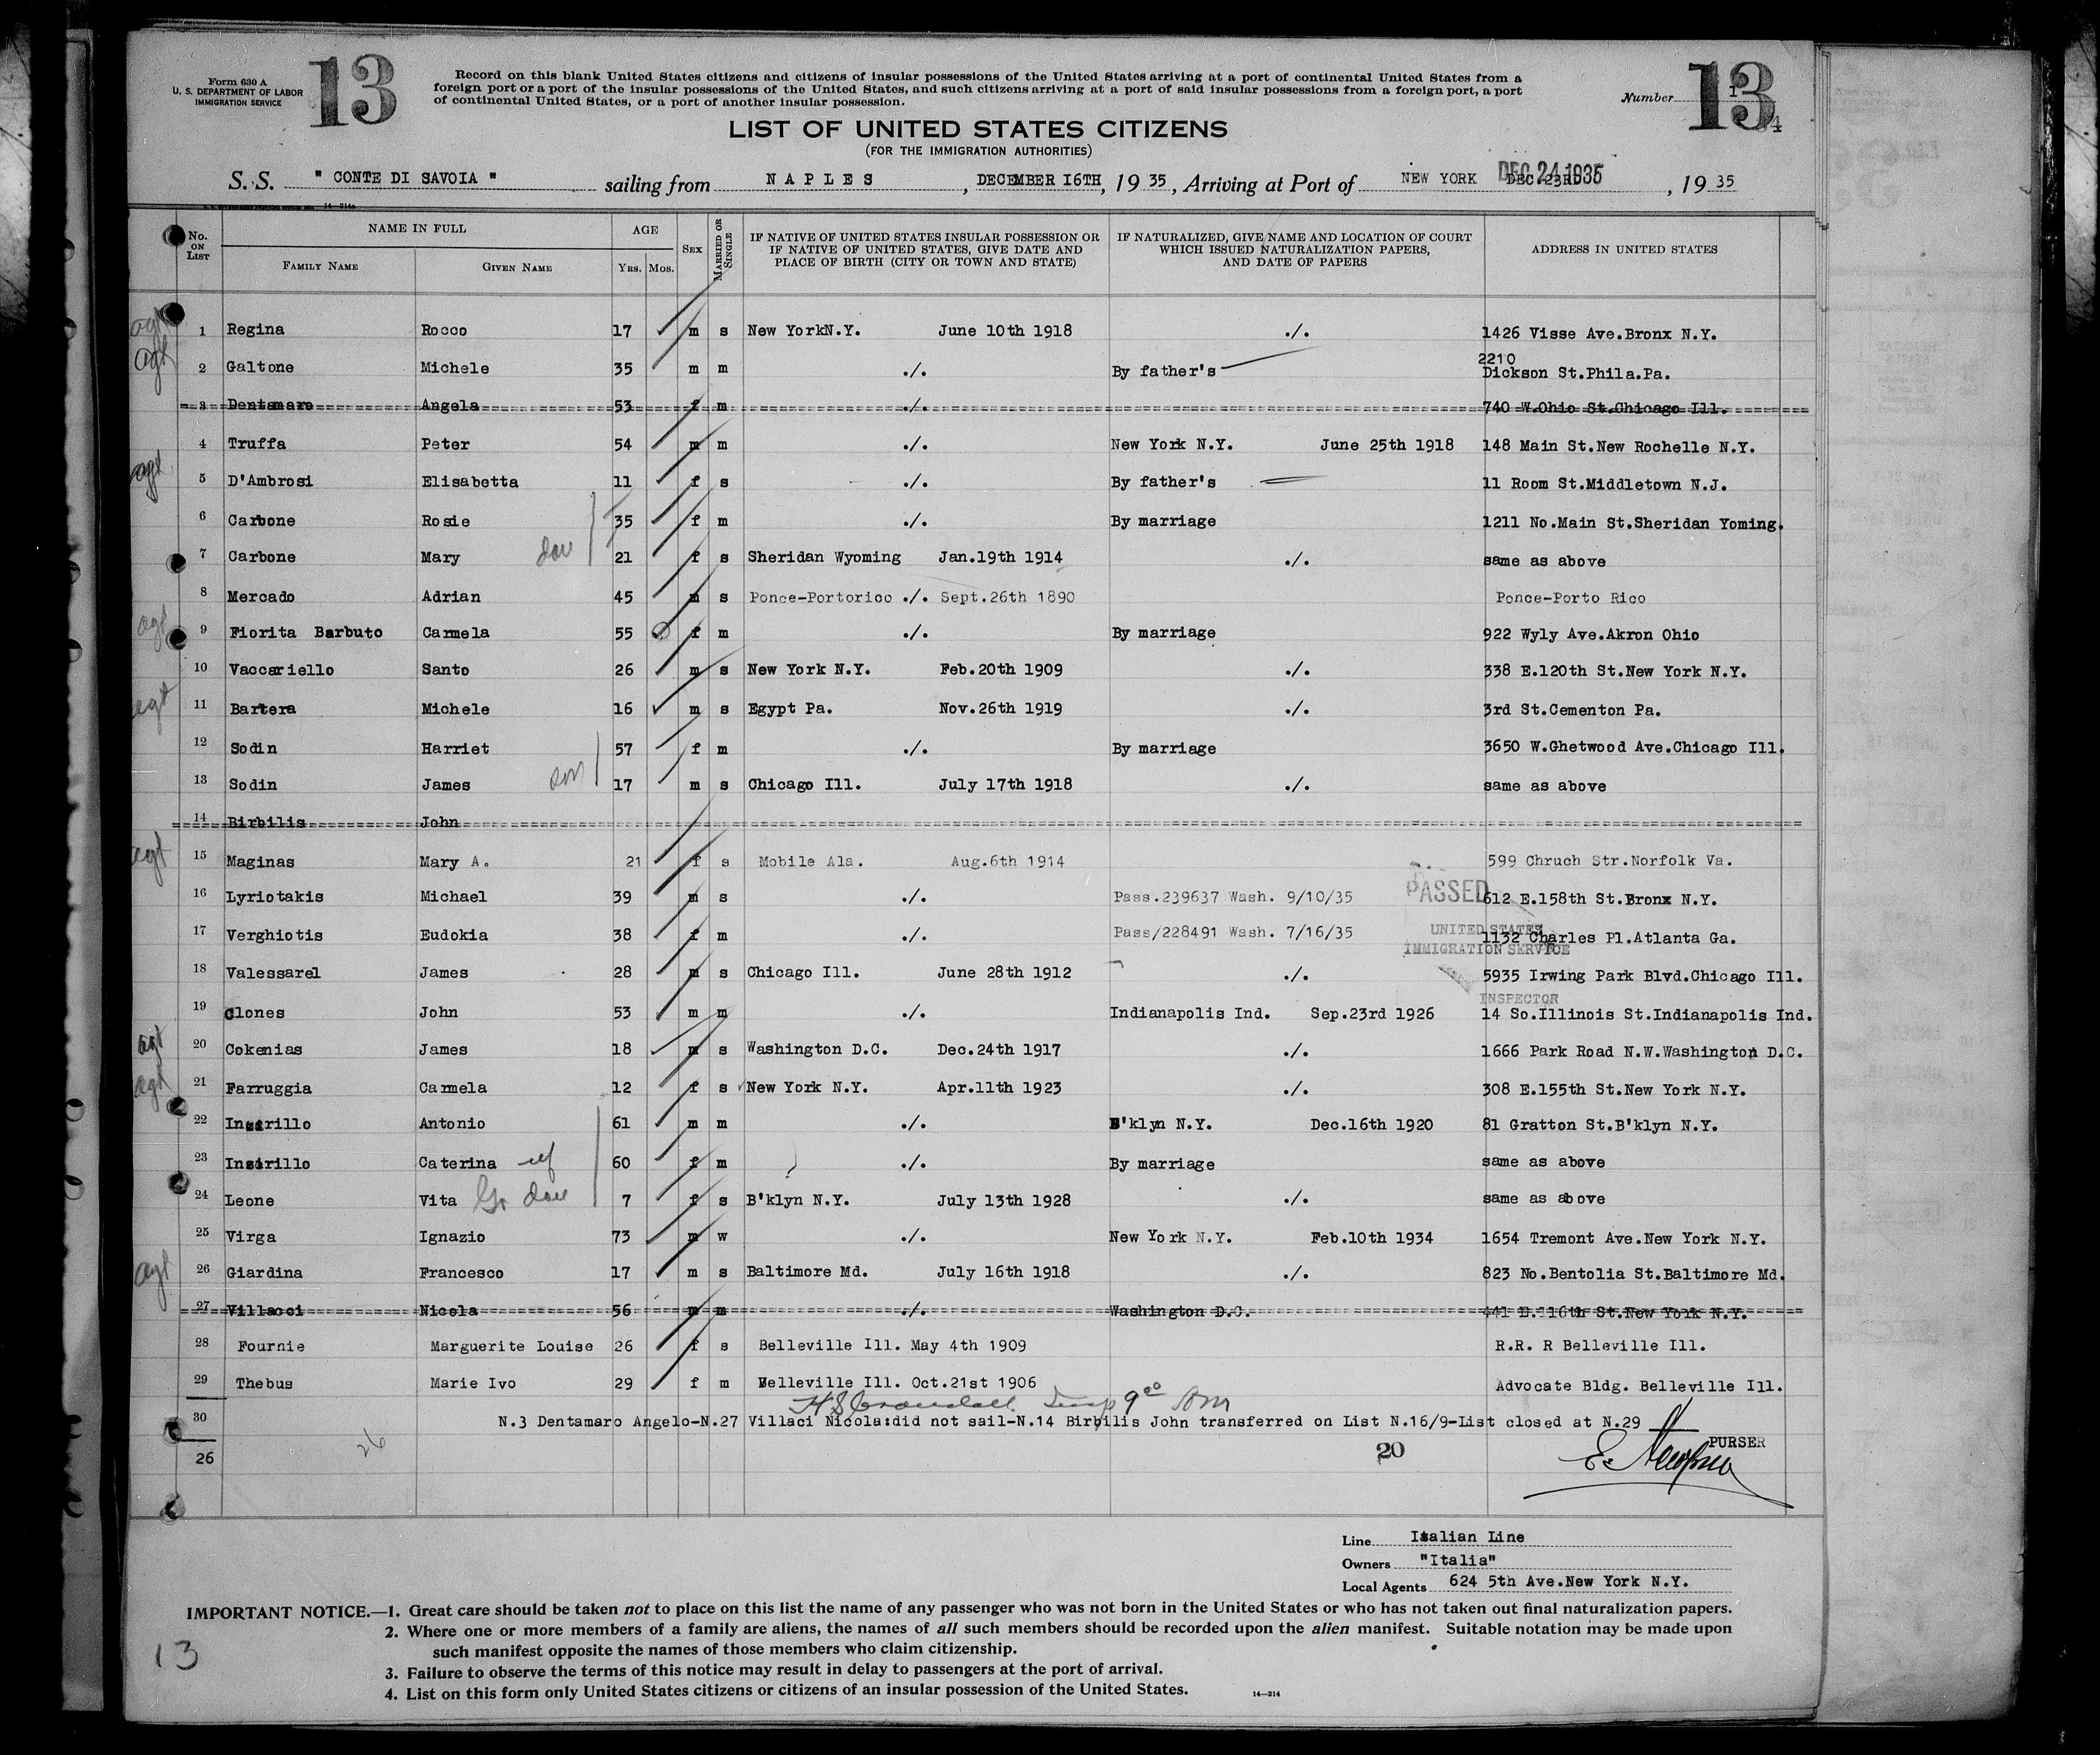 Form 630 A
U. S. DEPARTMENT OF LABOR
IMMIGRATION SERVICE
13
Record on this blank United States citizens and citizens of insular possessions of the United States arriving at a port of continental United States from a
foreign port or a port of the insular possessions of the United States, and such citizens arriving at a port of said insular possessions from a foreign port, a port
of continental United States, or a port of another insular possession.
Number 13
LIST OF UNITED STATES CITIZENS
(FOR THE IMMIGRATION AUTHORITIES)
S. S. " CONTE DI SAVOIA " sailing from NAPLES, DECEMBER 16TH, 19 35, Arriving at Port of NEW YORK DEC.23RD DEC 24 1935, 19 35
No. ON LIST NAME IN FULL FAMILY NAME GIVEN NAME AGE YRS. MOS. SEX MARRIED OR SINGLE IF NATIVE OF UNITED STATES INSULAR POSSESSION OR IF NATIVE OF UNITED STATES, GIVE DATE AND PLACE OF BIRTH (CITY OR TOWN AND STATE) IF NATURALIZED, GIVE NAME AND LOCATION OF COURT WHICH ISSUED NATURALIZATION PAPERS, AND DATE OF PAPERS ADDRESS IN UNITED STATES
agt 1 Regina Rocco 17 m s New YorkN.Y. June 10th 1918 ./. 1426 Visse Ave.Bronx N.Y.
agt 2 Galtone Michele 35 m m ./. By father's 2210 Dickson St.Phila.Pa.
3 Dentamaro Angela 53 f m ./. 740 W.Ohio St.Chicago Ill.
4 Truffa Peter 54 m m ./. New York N.Y. June 25th 1918 148 Main St.New Rochelle N.Y.
agt 5 D'Ambrosi Elisabetta 11 f s ./. By father's 11 Room St.Middletown N.J.
6 Carbone Rosie 35 f m ./. By marriage 1211 No.Main St.Sheridan Yoming.
7 Carbone Mary dau 21 f s Sheridan Wyoming Jan.19th 1914 ./. same as above
8 Mercado Adrian 45 m s Ponce-Portorico ./. Sept.26th 1890 Ponce-Porto Rico
agt 9 Fiorita Barbuto Carmela 55 f m ./. By marriage 922 Wyly Ave.Akron Ohio
10 Vaccariello Santo 26 m s New York N.Y. Feb.20th 1909 ./. 338 E.120th St.New York N.Y.
agt 11 Bartera Michele 16 m s Egypt Pa. Nov.26th 1919 ./. 3rd St.Cementon Pa.
12 Sodin Harriet 57 f m ./. By marriage 3650 W.Ghetwood Ave.Chicago Ill.
13 Sodin James son 17 m s Chicago Ill. July 17th 1918 ./. same as above
14 Birbilis John
agt 15 Maginas Mary A. 21 f s Mobile Ala. Aug.6th 1914 599 Chruch Str.Norfolk Va.
16 Lyriotakis Michael 39 m s ./. Pass.239637 Wash. 9/10/35 612 E.158th St.Bronx N.Y.
PASSED
17 Verghiotis Eudokia 38 f m ./. Pass/228491 Wash. 7/16/35 1132 Charles Pl.Atlanta Ga.
UNITED STATES
IMMIGRATION SERVICE
18 Valessarel James 28 m s Chicago Ill. June 28th 1912 ./. 5935 Irwing Park Blvd.Chicago Ill.
INSPECTOR
19 Clones John 53 m m ./. Indianapolis Ind. Sep.23rd 1926 14 So.Illinois St.Indianapolis Ind.
agt 20 Cokenias James 18 m s Washington D.C. Dec.24th 1917 ./. 1666 Park Road N.W.Washington D.C.
agt 21 Farruggia Carmela 12 f s New York N.Y. Apr.11th 1923 ./. 308 E.155th St.New York N.Y.
22 Antonio 61 m m ./. B'klyn N.Y. Dec.16th 1920 81 Gratton St.B'klyn N.Y.
23 Caterina 60 f m ./. By marriage same as above
24 Leone Vita Gr dau 7 f s B'klyn N.Y. July 13th 1928 ./. same as above
25 Virga Ignazio 73 m w ./. New York N.Y. Feb.10th 1934 1654 Tremont Ave.New York N.Y.
agt 26 Giardina Francesco 17 m s Baltimore Md. July 16th 1918 ./. 823 No.Bentolia St.Baltimore Md.
27 Villacci Nicola 56 m m ./. Washington D.C. 441 E.116th St.New York N.Y.
28 Fournie Marguerite Louise 26 f s Belleville Ill. May 4th 1909 R.R. R Belleville Ill.
29 Thebus Marie Ivo 29 f m Belleville Ill. Oct.21st 1906 Advocate Bldg. Belleville Ill.
30 N.3 Dentamaro Angelo-N.27 Villaci Nicola:did not sail-N.14 Birbilis John transferred on List N.16/9-List closed at N.29
PURSER
26 26 20
Line Italian Line
Owners "Italia"
Local Agents 624 5th Ave.New York N.Y.
IMPORTANT NOTICE.—1. Great care should be taken not to place on this list the name of any passenger who was not born in the United States or who has not taken out final naturalization papers.
2. Where one or more members of a family are aliens, the names of all such members should be recorded upon the alien manifest. Suitable notation may be made upon
such manifest opposite the names of those members who claim citizenship.
3. Failure to observe the terms of this notice may result in delay to passengers at the port of arrival.
4. List on this form only United States citizens or citizens of an insular possession of the United States.
14—214
13